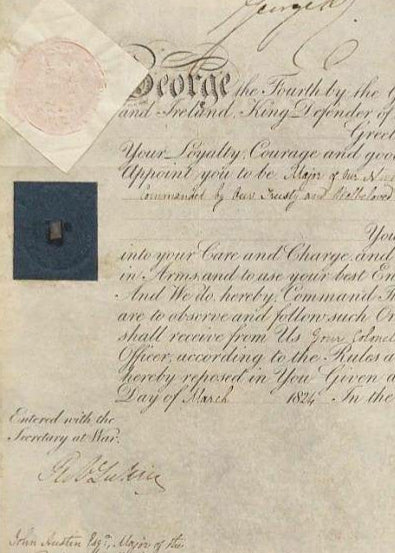 George R
George the Fourth by the G
and Ireland, King Defender of
Greet
Your Loyalty, Courage and goo
Appoint you to be Major of Our
Commanded by Our Trusty and Welbeloved
You
into your Care and Charge, and
in Arms, and to use your best En
And We do, hereby, Command Th
are to observe and follow such Or
shall receive from Us your Colonel
Officer, according to the Rules a
hereby reposed in You Given a
Day of March 1824 In the
Entered with the
Secretary at War.
John Austin Esqr. Major of the